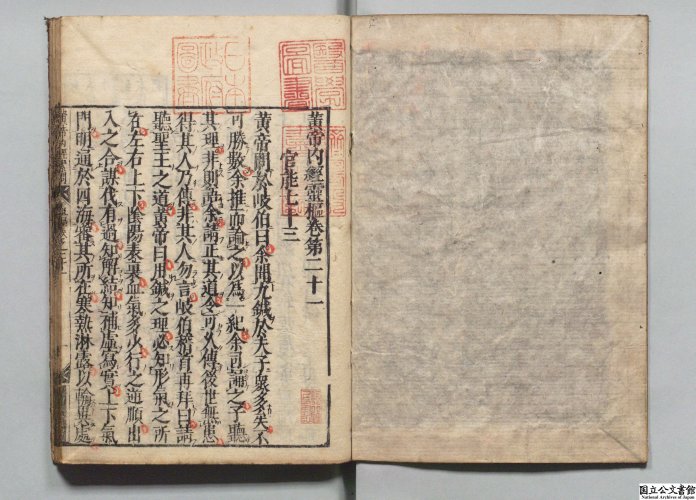 黄帝内經靈樞卷第二十一
官能七十三
黄帝問於岐伯曰余聞九鍼於夫子衆多矣不
可勝數余推而論之以為一紀余司誦之子聽
其理非則語余請正其道令可久傳後世無患
得其人乃傳非其人勿言岐伯稽首再拜曰請
聽聖王之道黄帝曰用鍼之理必知形氣之所
在左右上下陰陽表裏血氣多少行之逆順出
入之合謀代有過知解結知補虛寫實上下氣
門明通於四海審其所在寒熱淋露以輸異處
日本政府圖書
国立公文書館
National Archives of Japan